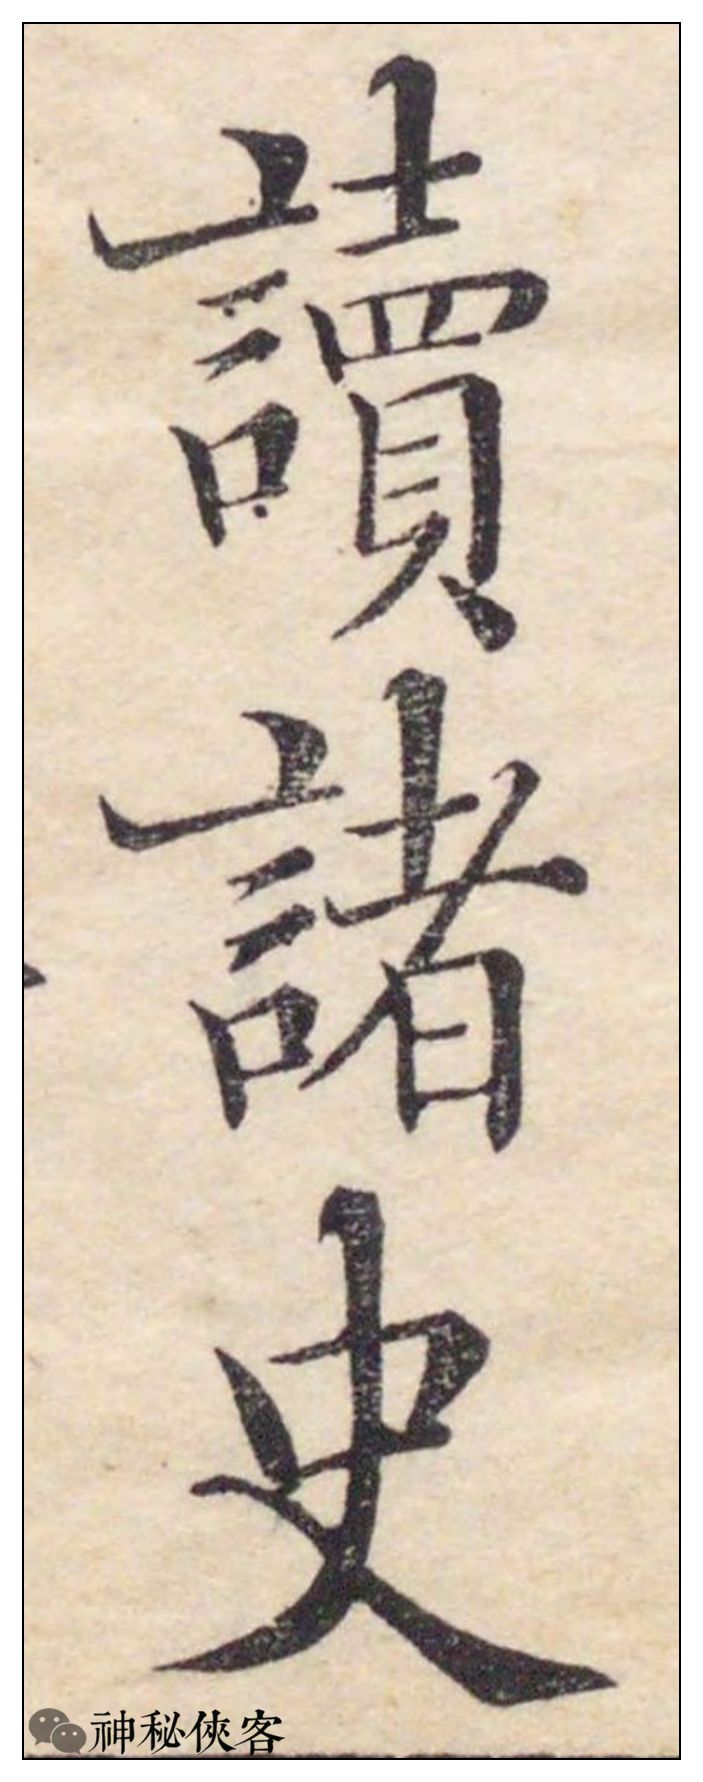 讀諸史
神秘俠客